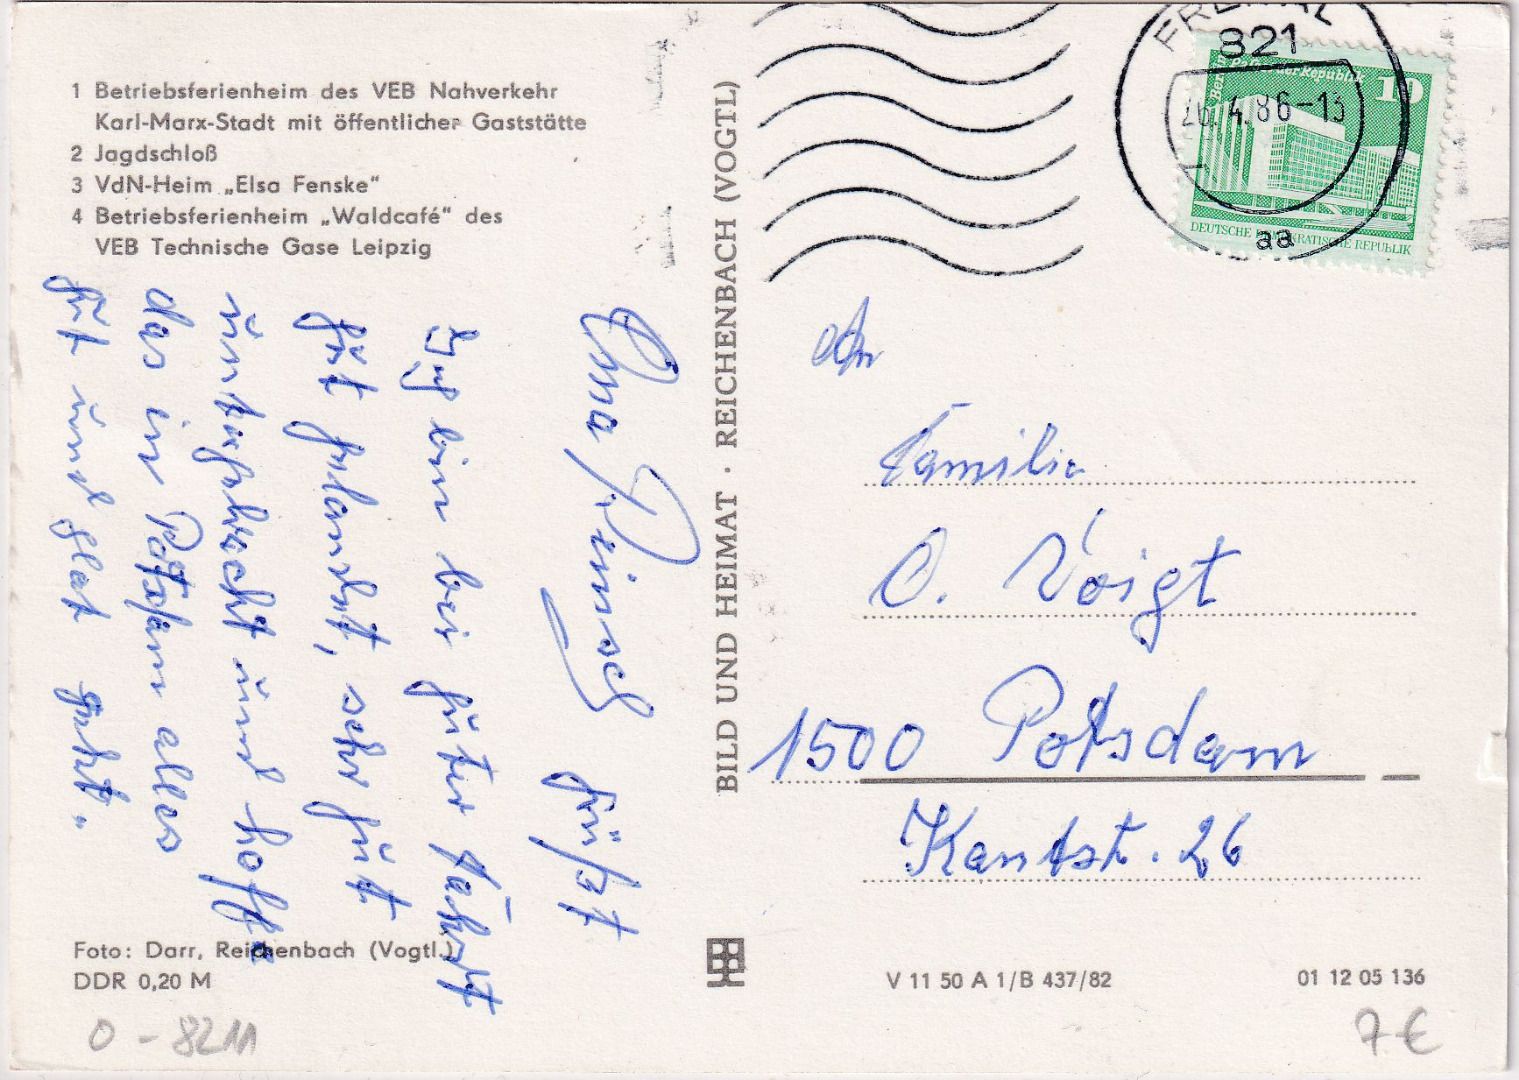 1 Betriebsferienheim des VEB Nahverkehr
Karl-Marx-Stadt mit öffentlicher Gaststätte
2 Jagdschloß
3 VdN-Heim „Elsa Fenske“
4 Betriebsferienheim „Waldcafé“ des
VEB Technische Gase Leipzig
grüßt
Ich bin bei guter Fahrt
gut gelandet, sehr gut
untergebracht und hoffe
das in Potsdam alles
gut und glat geht.
Foto: Darr, Reichenbach (Vogtl.)
DDR 0,20 M
0-8211
BILD UND HEIMAT · REICHENBACH (VOGTL)
821
26.4.86-13
aa
der Republik
10
DEUTSCHE DEMOKRATISCHE REPUBLIK
An
Familie
O. Voigt
1500 Potsdam
Kantstr. 26
V 11 50 A 1/B 437/82
01 12 05 136
7 €